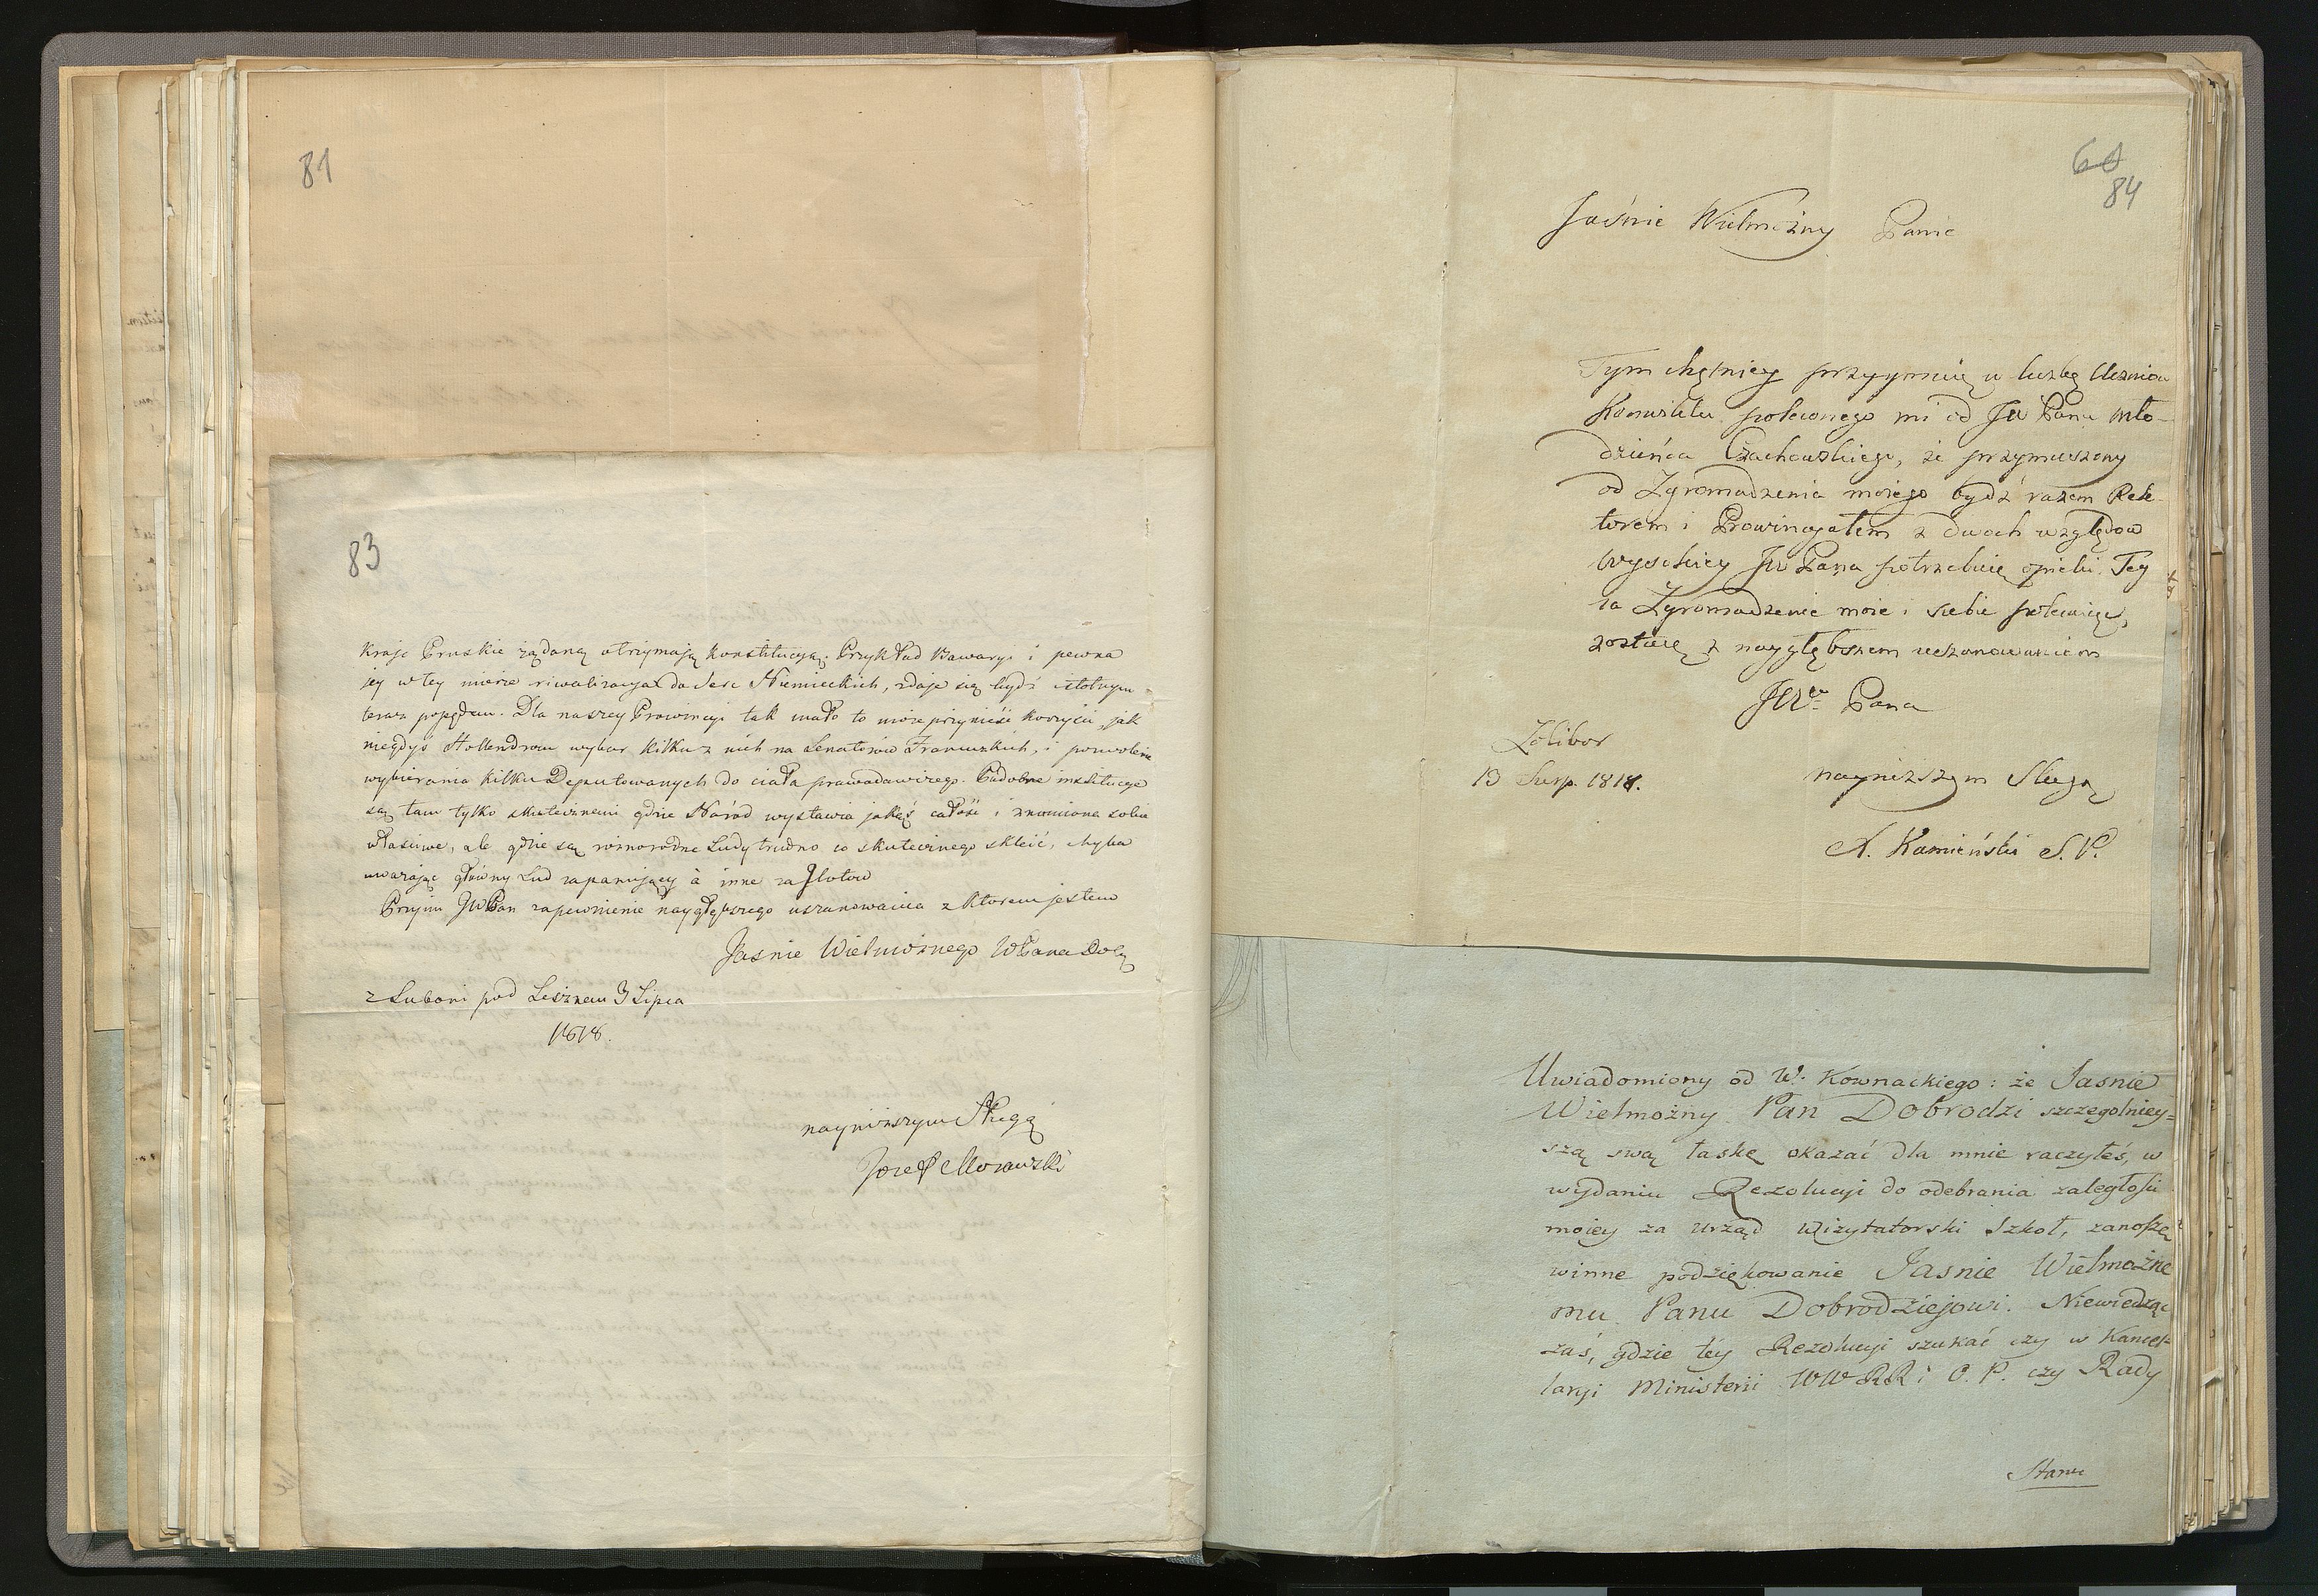 81
83
Kraje Pruskie żądaną otrzymają Konstitucyą. Przykład Bawaryi i pewna
jey w tey mierze riwalizacya do serc Niemieckich, zdaje się bydź istotnym
teraz popędem. Dla naszey Prowincyi tak mało to może przynieść korzyści, jak
niegdyś Hollendrom wybor kilku z nich na Senatorów Francuzkich, i pozwolenie
wybierania kilku Deputowanych do ciała prawodawczego. Podobne instytucye
są tam tylko skutecznemi gdzie Naród wystawia jakąś całość i znamiona sobie
właściwe, ale gdzie są roznorodne Ludy trudno co skutecznego skleić, chyba
uważając główny Lud zapanujący à inne za Jlotow
Przyim JWPan zapewnienie naygłębszego uszanowania z ktorem jestem
Jasnie Wielmożnego WPana Dob
z Luboni pod Lesznem 3 Lipca
1818.
nayniższym Sługą
Jozef Morawski
60
84
Jaśnie Wielmożny Panie
Tym chętniey przyymuię w liczbę Uczniow
Konwiktu poleconego mi od JW Pana Mło-
dzieńca Czachowskiego, że przymuszony
od Zgromadzenia moiego bydź razem Rek-
torem i Prowincyałem z dwoch względow
wysokiey JW Pana potrzebuię opieki. Tey
za Zgromadzenie moie i siebie polecaiąc,
zostaię z naygłębszem uszanowaniem
JWo Pana
Żolibor
13 Sierp. 1818.
nayniższym Sługą
A. Kamieński S. P.
Uwiadomiony od W. Kownackiego: że Jasnie
Wielmożny Pan Dobrodzi szczegolniey=
szą swą łaskę okazać dla mnie raczyłeś, w
wydaniu Rezolucyi do odebrania zaległości
moiey za urząd wizytatorski Szkoł, zanoszę
winne podziękowanie Jasnie Wielmożne
mu Panu Dobrodziejowi. Niewiedząc
zaś, gdzie téy Rezolucyi szukać czy w Kancel=
laryi Ministerii WWRR i O. P. czy Rady
Stanu